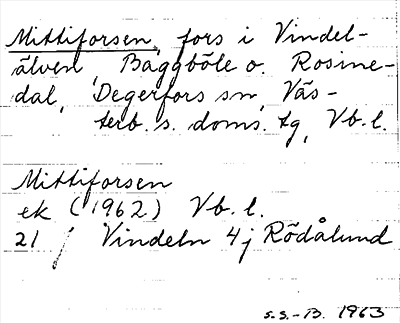 Mittiforsen, fors i Vindel-
älven, Baggböle o. Rosine-
dal, Degerfors sn, Väs-
terb. s. doms. tg, Vb. l.
Mittiforsen
ek (1962) Vb. l.
21 Vindeln 4j Rödålund
s.s.-B. 1963